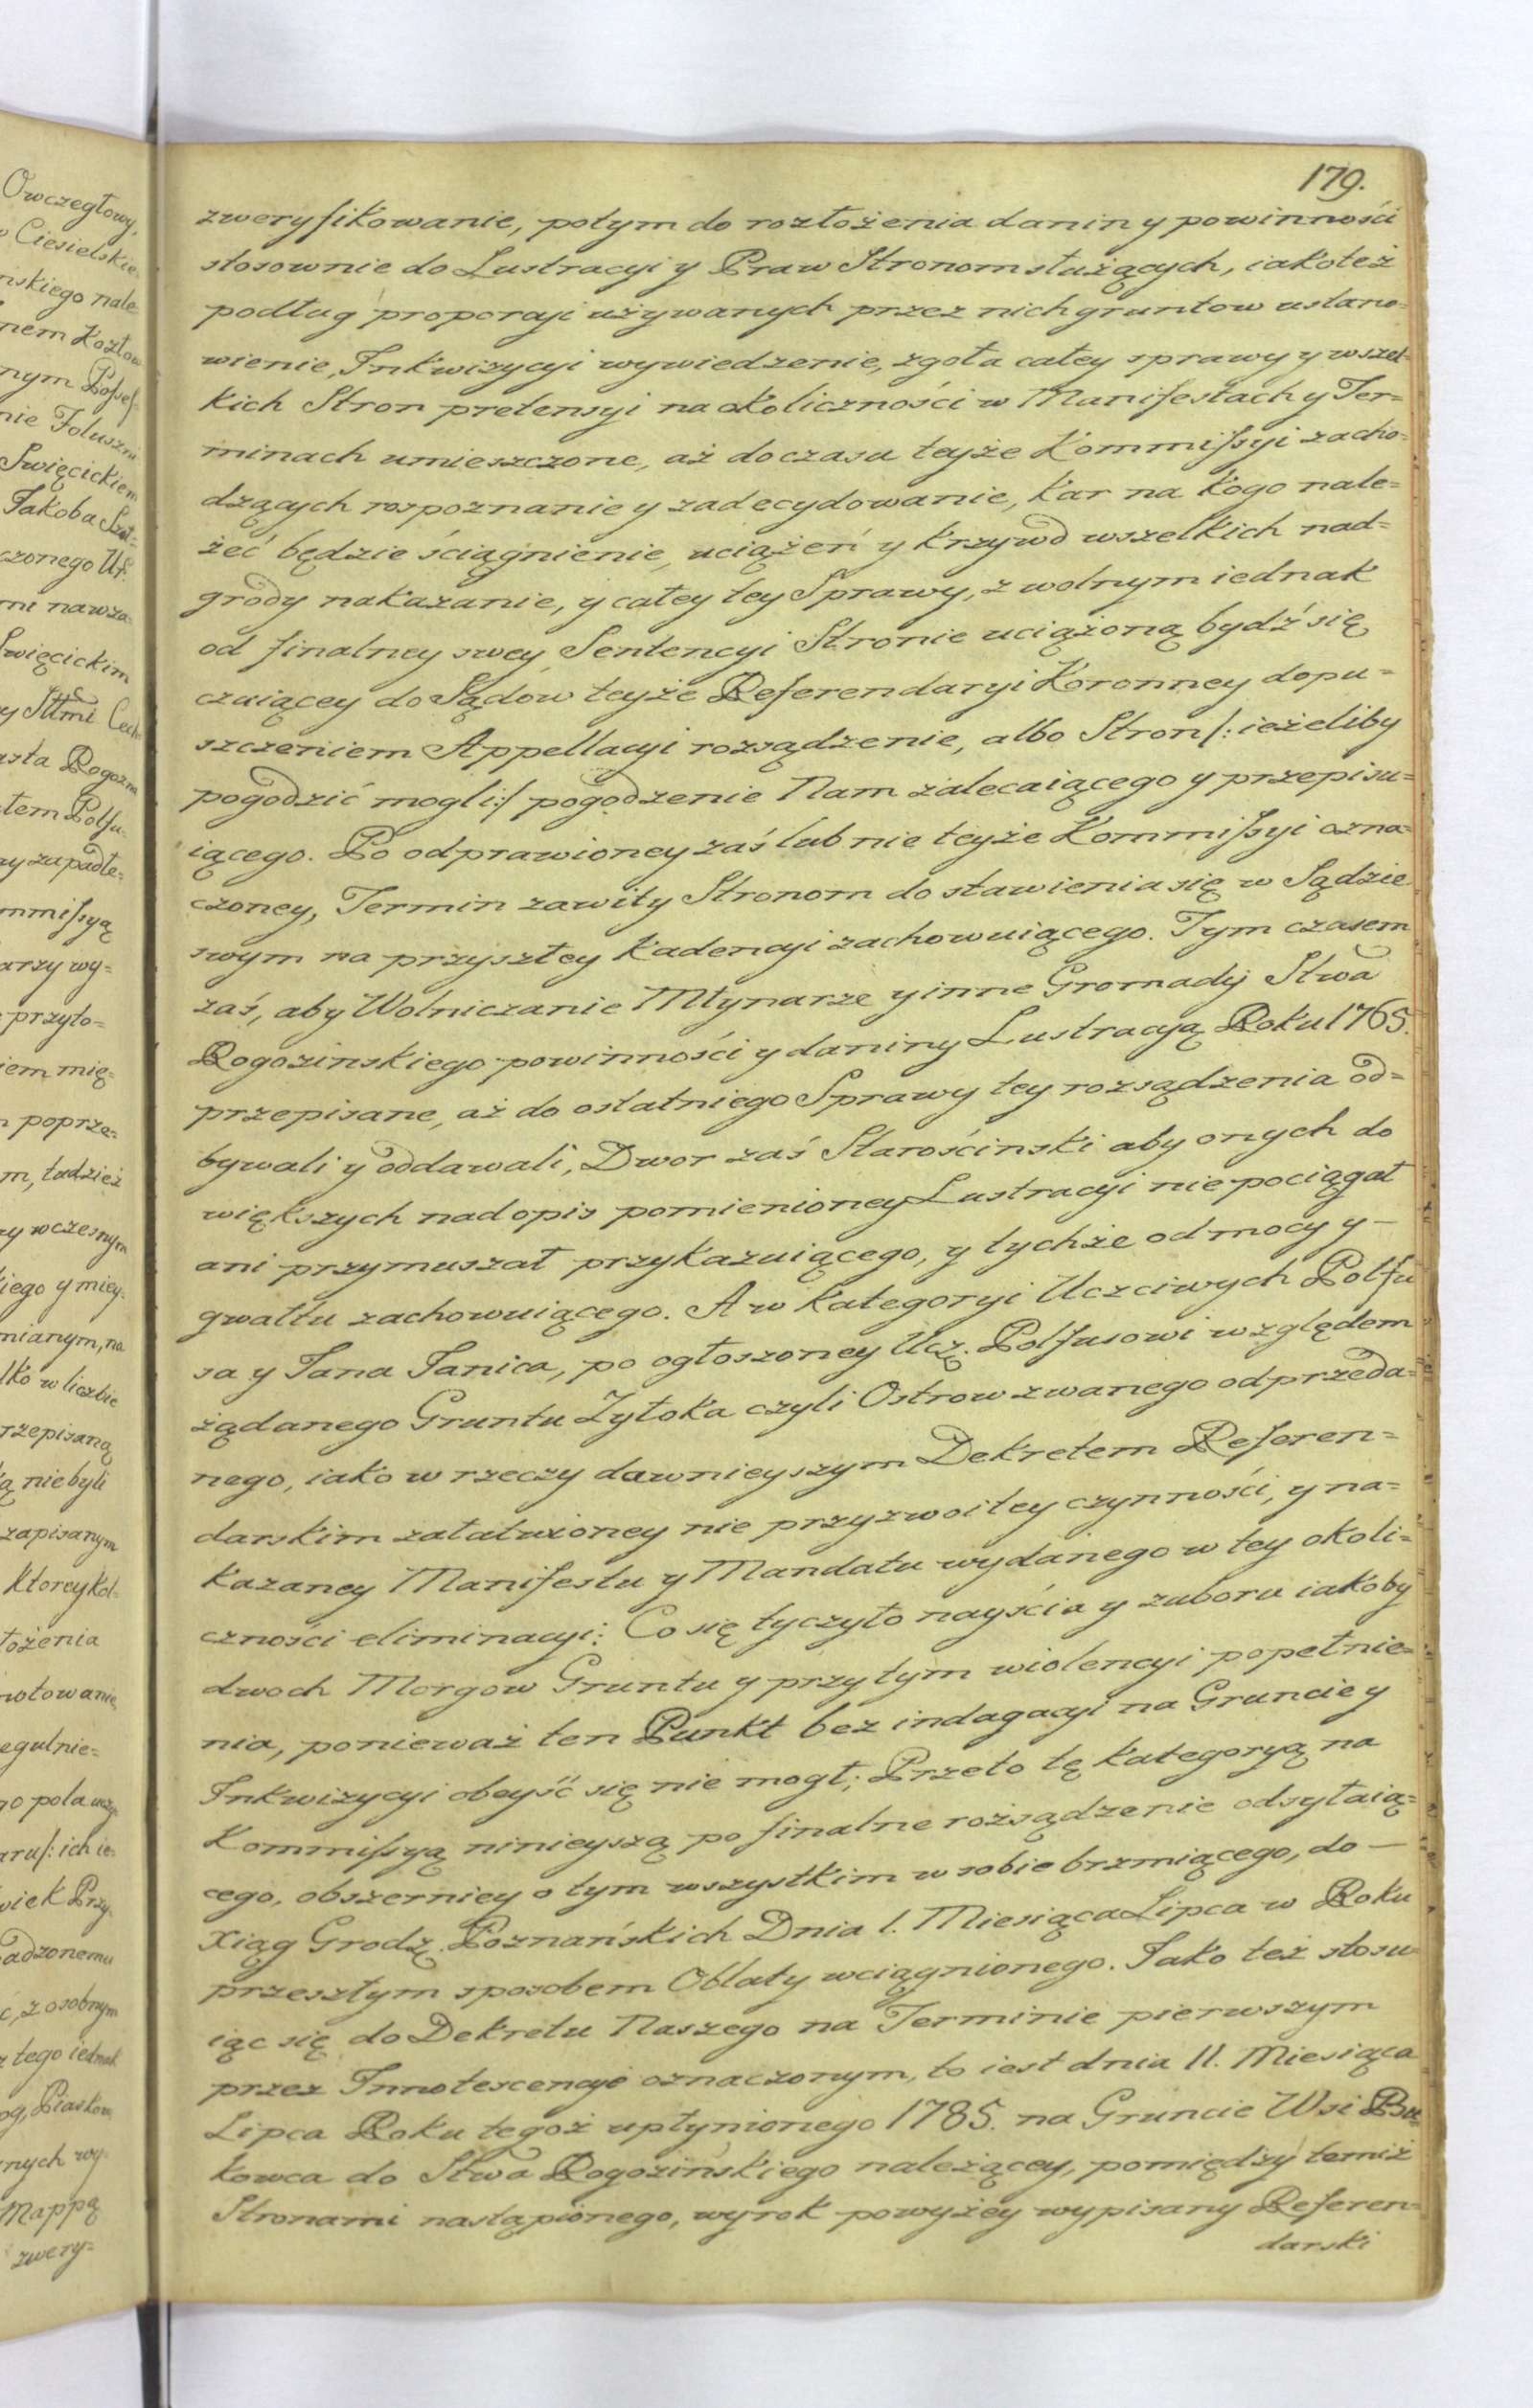 179.
zweryfikowanie, potym do rozłożenia danin y powinności
stosownie do Lustracyi y Praw Stronom służących, iakoteż
podług proporcyi używanych przez nich gruntow ustano=
wienie, Inkwizycyi wywiedzenie, zgoła całey sprawy y wszel=
kich Stron pretensyi na okoliczności w Manifestach y Ter=
minach umieszczone, aż do czasu teyże Kommissyi zacho=
dzących rozpoznanie y zadecydowanie, kar na kogo nale=
żeć będzie ściągnienie, uciążeń y krzywd wszelkich nad=
grody nakazanie, y całey tey Sprawy, z wolnym iednak
od finalney swey Sentencyi Stronie uciążoną bydź się
czuiącey do Sądów teyże Referendaryi Koronney dopu=
szczeniem Appellacyi rozsądzenie, albo Stron /: ieżeliby
pogodzić mogli :/ pogodzenie Nam zalecaiącego y przepisu=
iącego. Po odprawioney zaś lub nie teyże Kommissyi ozna=
czoney, Termin zawity Stronom do stawienia się w Sądzie
swym na przyszłey kadencyi zachowuiącego. Tym czasem
zaś, aby Wolniczanie Młynarze y inne Gromady Stwa
Rogozinskiego powinności y daniny Lustracyą Roku 1765.
przepisane, aż do ostatniego Sprawy tey rozsądzenia od=
bywali y oddawali, Dwor zaś Starościnski aby onych do
większych nad opis pomienioney Lustracyi nie pociągał
ani przymuszał przykazuiącego, y tychże od mocy y —
gwałtu zachowuiącego. A w kategoryi Uczciwych Polfu
sa y Jana Janica, po ogłoszoney Ucz. Polfusowi względem
żądanego Gruntu Zytoka czyli Ostrow zwanego odprzeda=
nego, iako w rzeczy dawnieyszym Dekretem Referen=
darskim załatwioney nie przyzwoitey czynności, y na=
kazaney Manifestu y Mandatu wydanego w tey okoli=
czności eliminacyi: Co się tyczyło nayścia y zaboru iakoby
dwoch Morgow Gruntu y przytym wiolencyi popełnie=
nia, ponieważ ten Punkt bez indagacyi na Gruncie y
Inkwizycyi obeyść się nie mogł; Przeto tę kategoryą na
Kommissyą ninieyszą po finalne rozsądzenie odsyłaią=
cego, obszerniey o tym wszystkim w sobie brzmiącego, do —
Xiąg Grodz. Poznańskich Dnia 1. Miesiąca Lipca w Roku
przeszłym sposobem Oblaty wciągnionego. Jako też stosu
iąc się do Dekretu Naszego na Terminie pierwszym
przez Innotescencye oznaczonym, to iest dnia 11. Miesiąca
Lipca Roku tegoż upłynionego 1785. na Gruncie Wsi Bu=
kowca do Stwa Rogozińskiego należącey, pomiędzy temiż
Stronami nastąpionego, wyrok powyżey wypisany Referen=
darski